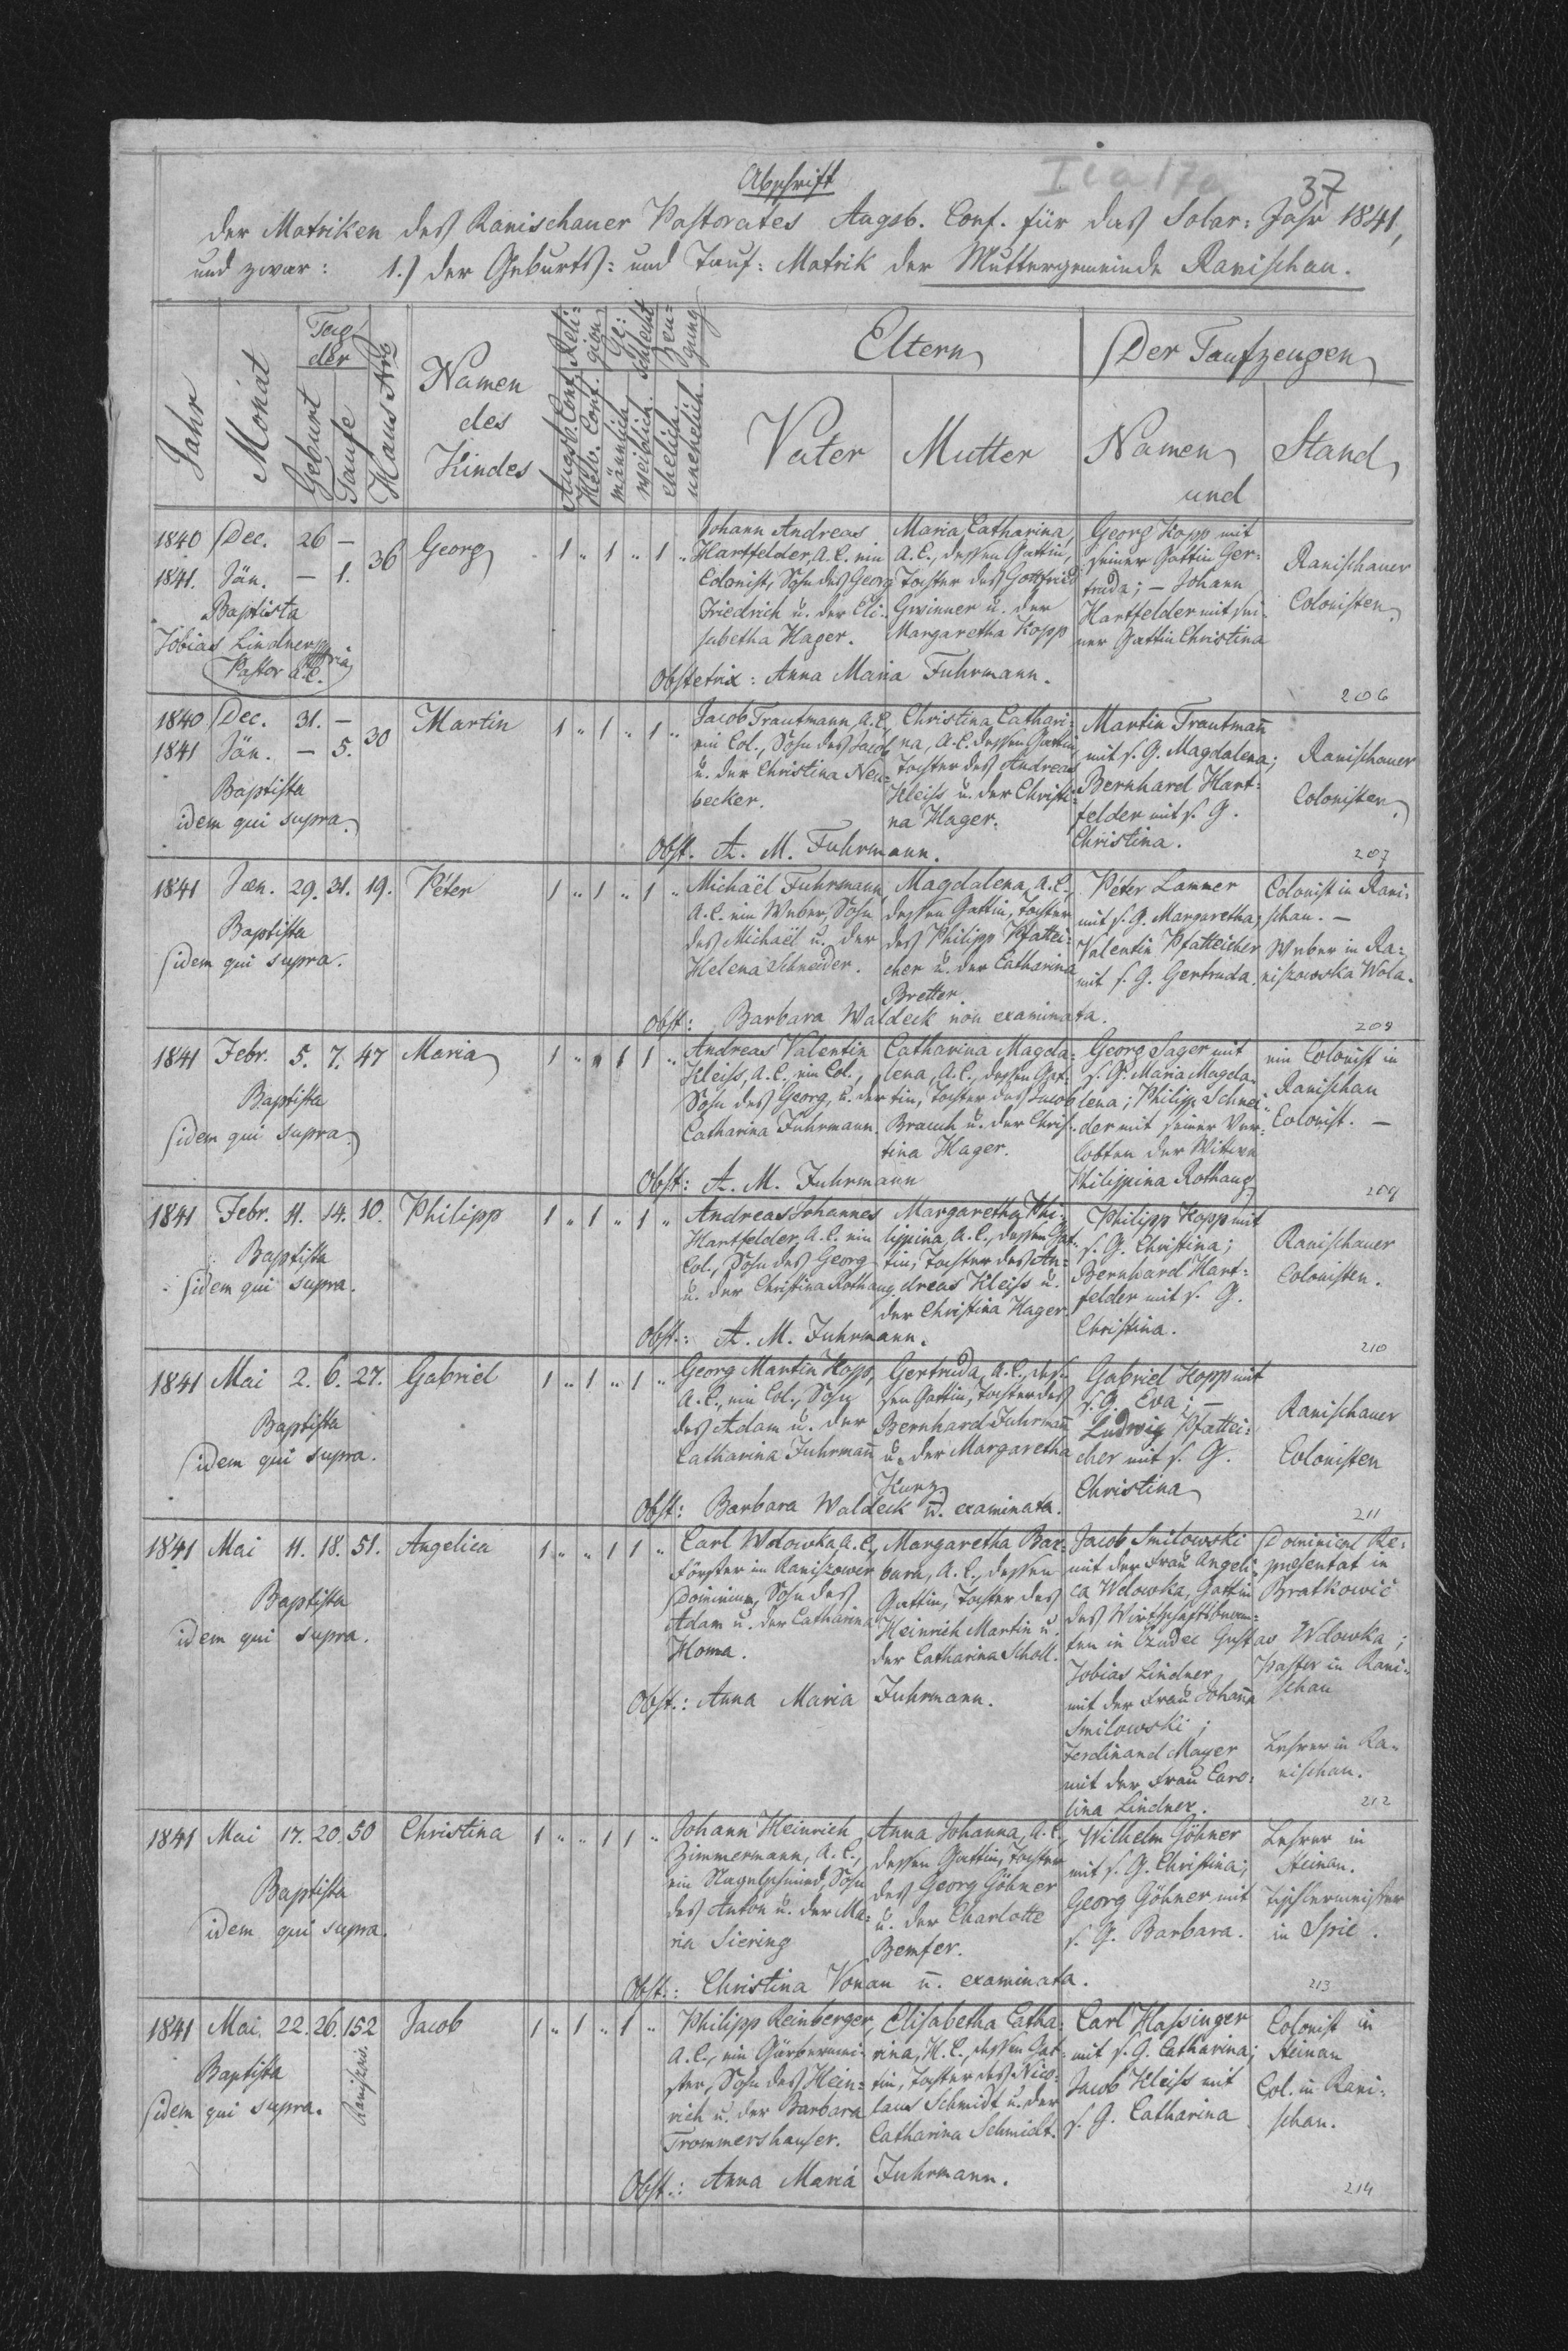 Abschrift
37
der Matriken des Ranischauer Pastorates Augsb. Conf. für das Solar-Jahr 1841,
und zwar: 1.) der Geburts- und Tauf-Matrik der Muttergemeinde Ranischau.
Jahr
Monat
Tag der
Geburt
Taufe
Haus Nro
Namen des Kindes
Religion
Augsb. Conf.
Helv. Conf.
Geschlecht
männlich
weiblich
Zeugung
ehelich
unehelich
Eltern
Vater
Mutter
Der Taufzeugen
Namen und Stand
1840 Dec. 26 –
1841. Jän. – 1. 36 Georg 1 " 1 " 1 "
Baptista
Tobias Lindner
Pastor A.C.
Johann Andreas
Hartfelder, A.C. ein
Colonist, Sohn des Georg
Friedrich u. der Eli-
sabetha Hager.
Maria Catharina,
A.C., dessen Gattin,
Tochter des Gottfried
Gwinner u. der
Margaretha Kopp
Georg Kopp mit
seiner Gattin Ger-
truda; – Johann
Hartfelder mit sei-
ner Gattin Christina
Ranischauer
Colonisten
Obstetrix: Anna Maria Fuhrmann.
206
1840 Dec. 31. –
1841 Jän. – 5. 30 Martin 1 " 1 " 1 "
Baptista
idem qui supra.
Jacob Trautmann, A.C.,
ein Col., Sohn des Jacob
u. der Christina Neu-
becker.
Christina Cathari-
na, A.C. dessen Gattin,
Tochter des Andreas
Kleiss u. der Christi-
na Hager.
Martin Trautmañ
mit s. G. Magdalena;
Bernhard Hart-
felder mit s. G.
Christina.
Ranischauer
Colonisten
Obst. A. M. Fuhrmann.
207
1841 Jæn. 29. 31. 19. Péter 1 " 1 " 1 "
Baptista
idem qui supra.
Michaël Fuhrmann,
A.C. ein Weber, Sohn
des Michaël u. der
Helena Schneider.
Magdalena, A.C.,
dessen Gattin, Tochter
des Philipp Pfattei-
cher u. der Catharina
Bretter.
Péter Lammer
mit s. G. Margaretha;
Valentin Pfatteicher
mit s. G. Gertruda.
Colonist in Rani-
schau. –
Weber in Ra-
niszowska Wola.
Obst: Barbara Waldeck non examinata.
208
1841 Febr. 5. 7. 47 Maria 1 " " 1 1 "
Baptista
idem qui supra.
Andreas Valentin
Kleiss, A.C. ein Col.,
Sohn des Georg, u. der
Catharina Fuhrmann.
Catharina Magda-
lena, A.C., dessen Gat-
tin, Tochter des Jacob
Brauch u. der Chris-
tina Hager.
Georg Sager mit
s. G. Maria Magda-
lena; Philipp Schnei-
der mit seiner Ver-
lobten der Wittwe
Philippina Rothaug
ein Colonist in
Ranischau
Colonist. –
Obst: A. M. Fuhrmann
209
1841 Febr. 11. 14. 10. Philipp 1 " 1 " 1 "
Baptista
idem qui supra.
Andreas Johannes
Hartfelder, A.C. ein
Col., Sohn des Georg
u. der Christina Rothaug.
Margaretha Phi-
lippina, A.C., dessen Gat-
tin, Tochter des An-
dreas Kleiss u.
der Christina Hager.
Philipp Kopp mit
s. G. Christina;
Bernhard Hart-
felder mit s. G.
Christina.
Ranischauer
Colonisten.
Obst.: A. M. Fuhrmann.
210
1841 Mai 2. 6. 27. Gabriel 1 " 1 " 1 "
Baptista
idem qui supra.
Georg Martin Kopp,
A.C., ein Col., Sohn
des Adam u. der
Catharina Fuhrmañ
Gertruda, A.C., des-
sen Gattin, Tochter des
Bernhard Fuhrmañ
u. der Margaretha
Kunz.
Gabriel Kopp mit
s. G. Eva; –
Ludwig Pfattei-
cher mit s. G.
Christina
Ranischauer
Colonisten
Obst: Barbara Waldeck n. examinata.
211
1841 Mai 11. 18. 51. Angelica 1 " " 1 1 "
Baptista
idem qui supra.
Carl Wdowka, A.C.,
Förster im Raniszower
Dominium, Sohn des
Adam u. der Catharina
Homa.
Margaretha Bar-
bara, A.C., dessen
Gattin, Tochter des
Heinrich Martin u.
der Catharina Scholl.
Jacob Smilowski
mit der Frau Angeli-
ca Wdowka, Gattin
des Wirthschaftsbeam-
ten in Czudec Gustav Wdowka;
Tobias Lindner
mit der Frau Johaña
Smilowski;
Ferdinand Mayer
mit der Frau Caro-
lina Lindner.
Dominical Re-
præsentat in
Bratkowič
Pastor in Rani-
schau
Lehrer in Ra-
nischau.
Obst.: Anna Maria Fuhrmann.
212
1841 Mai 17. 20. 50 Christina 1 " " 1 1 "
Baptista
idem qui supra.
Johann Heinrich
Zimmermann, A.C.,
ein Nagelschmied, Sohn
des Anton u. der Ma-
ria Siering
Anna Johanna, A.C.,
dessen Gattin, Tochter
des Georg Göhner
u. der Charlotte
Bemfer.
Wilhelm Göhner
mit s. G. Christina;
Georg Göhner mit
s. G. Barbara.
Lehrer in
Steinau.
Tischlermeister
in Spie.
Obst.: Christina Vonau n. examinata.
213
1841 Mai. 22. 26. 152 Jacob 1 " 1 " 1 "
Baptista
idem qui supra.
Philipp Reinberger,
A.C., ein Gärbermei-
ster, Sohn des Hein-
rich u. der Barbara
Trommershauser.
Elisabetha Catha-
rina, H.C., dessen Gat-
tin, Tochter des Nico-
laus Schmidt u. der
Catharina Schmidt.
Carl Hassinger
mit s. G. Catharina;
Jacob Kleiss mit
s. G. Catharina
Colonist in
Steinau
Col. in Rani-
schau.
Obst.: Anna Maria Fuhrmann.
214